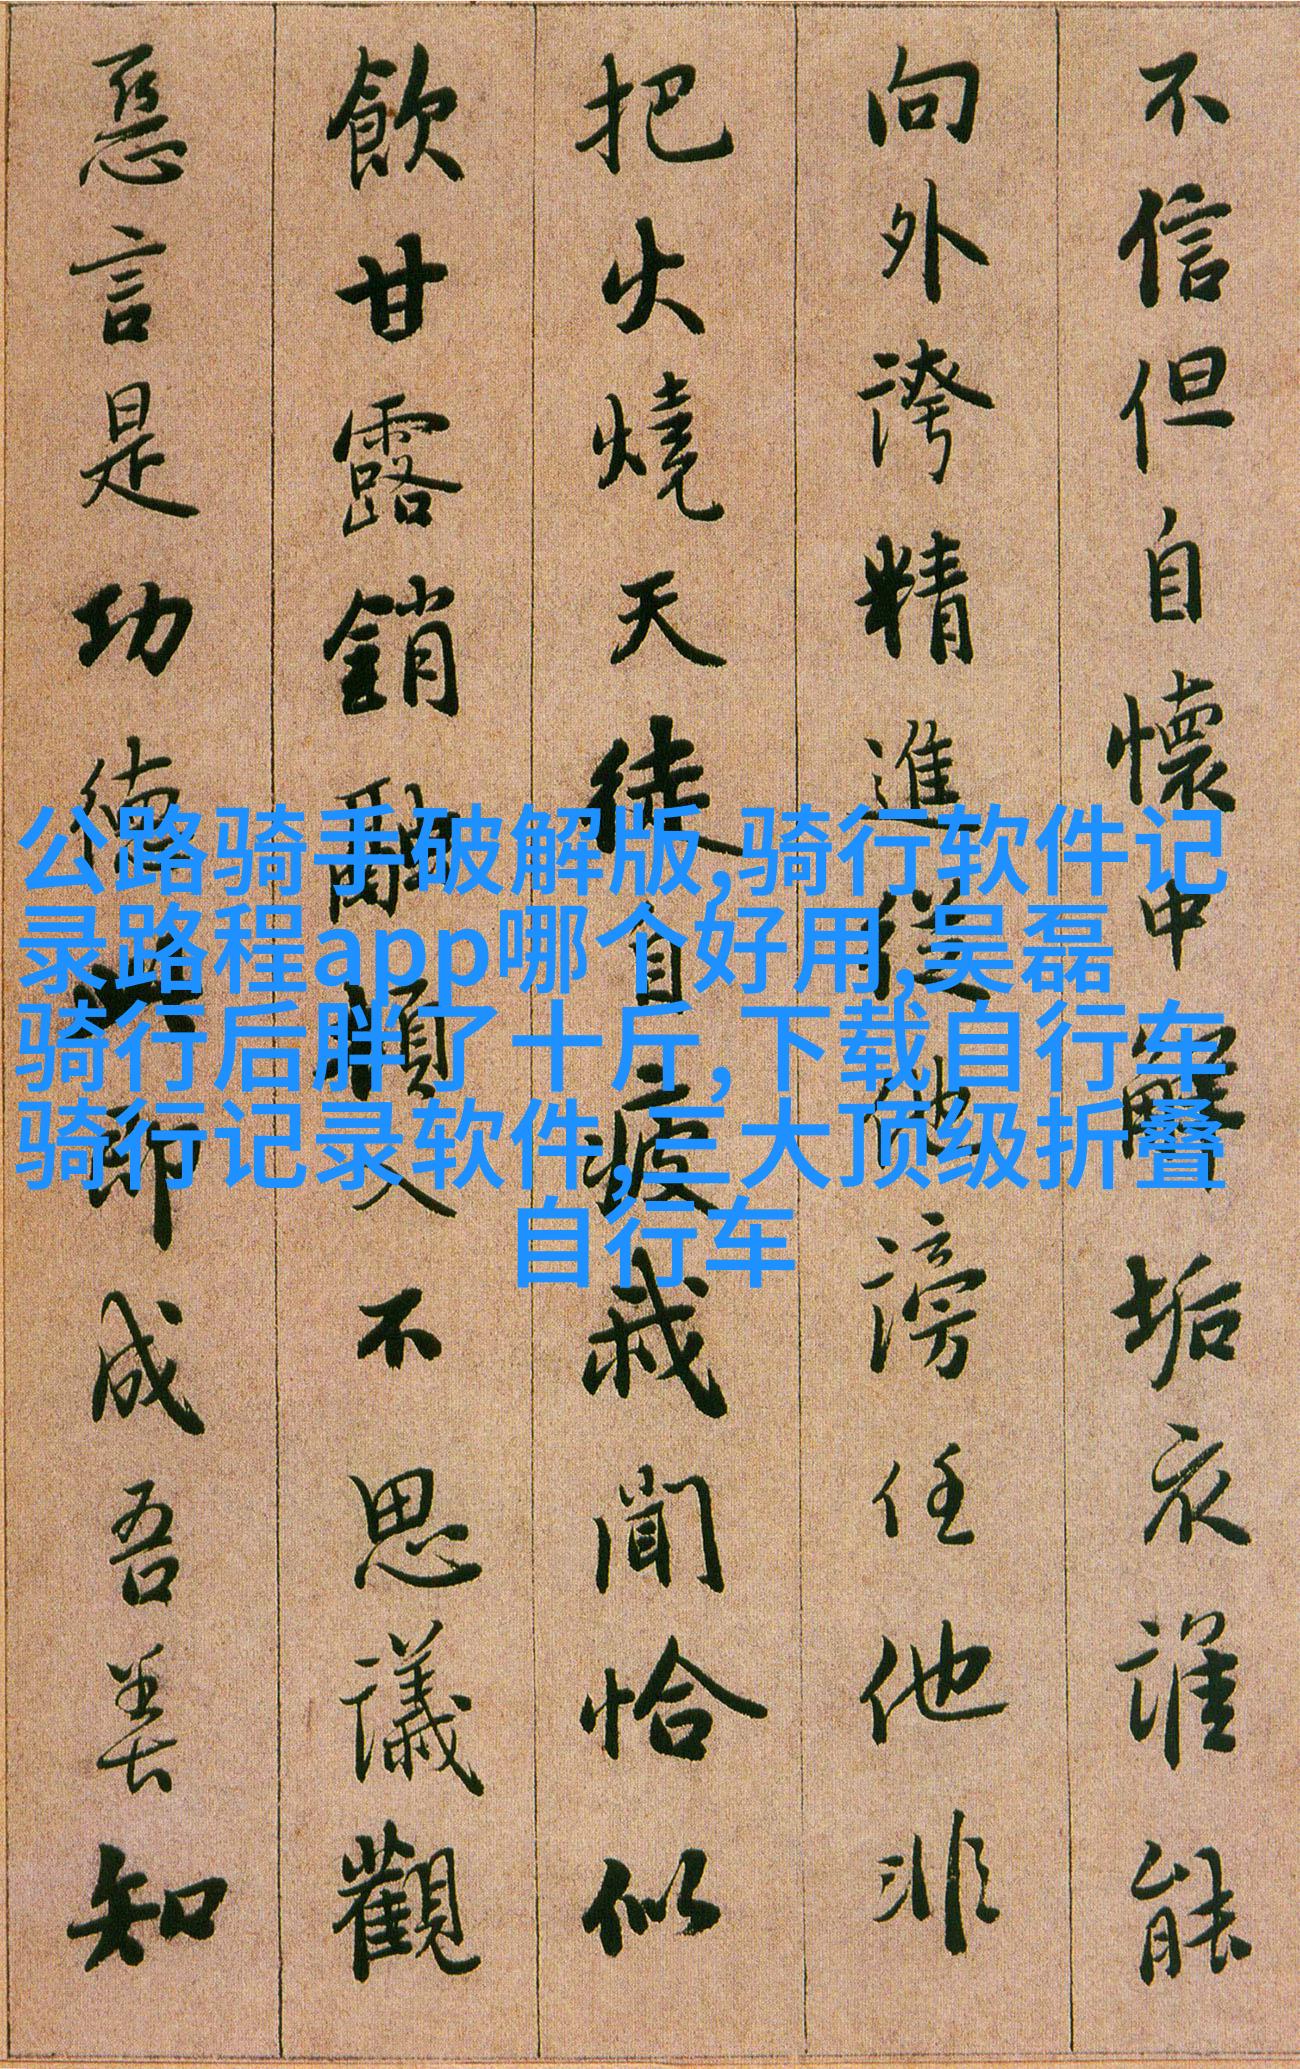 不信但自懷中解垢衣誰能
向外誇精進從他謗任他非
把火燒天徒自疲我聞恰似
飲甘露銷融頓入不思議觀
惡言是功德此即成吾善知
公路骑手破解版,骑行软件记
录路程app哪个好用,吴磊
骑行后胖了十斤,下载自行车
骑行记录软件,三大顶级折叠
自行车